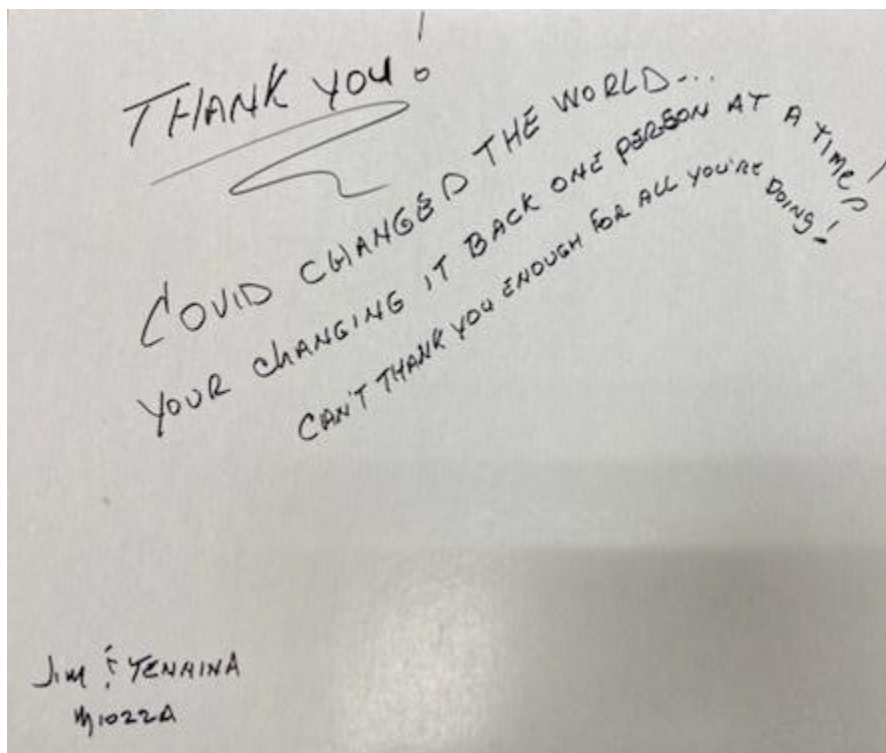 THANK YOU!
COVID CHANGED THE WORLD...
YOUR CHANGING IT BACK ONE PERSON AT A TIME!
CAN'T THANK YOU ENOUGH FOR ALL YOU'RE DOING!
JIM &
MIOZZA